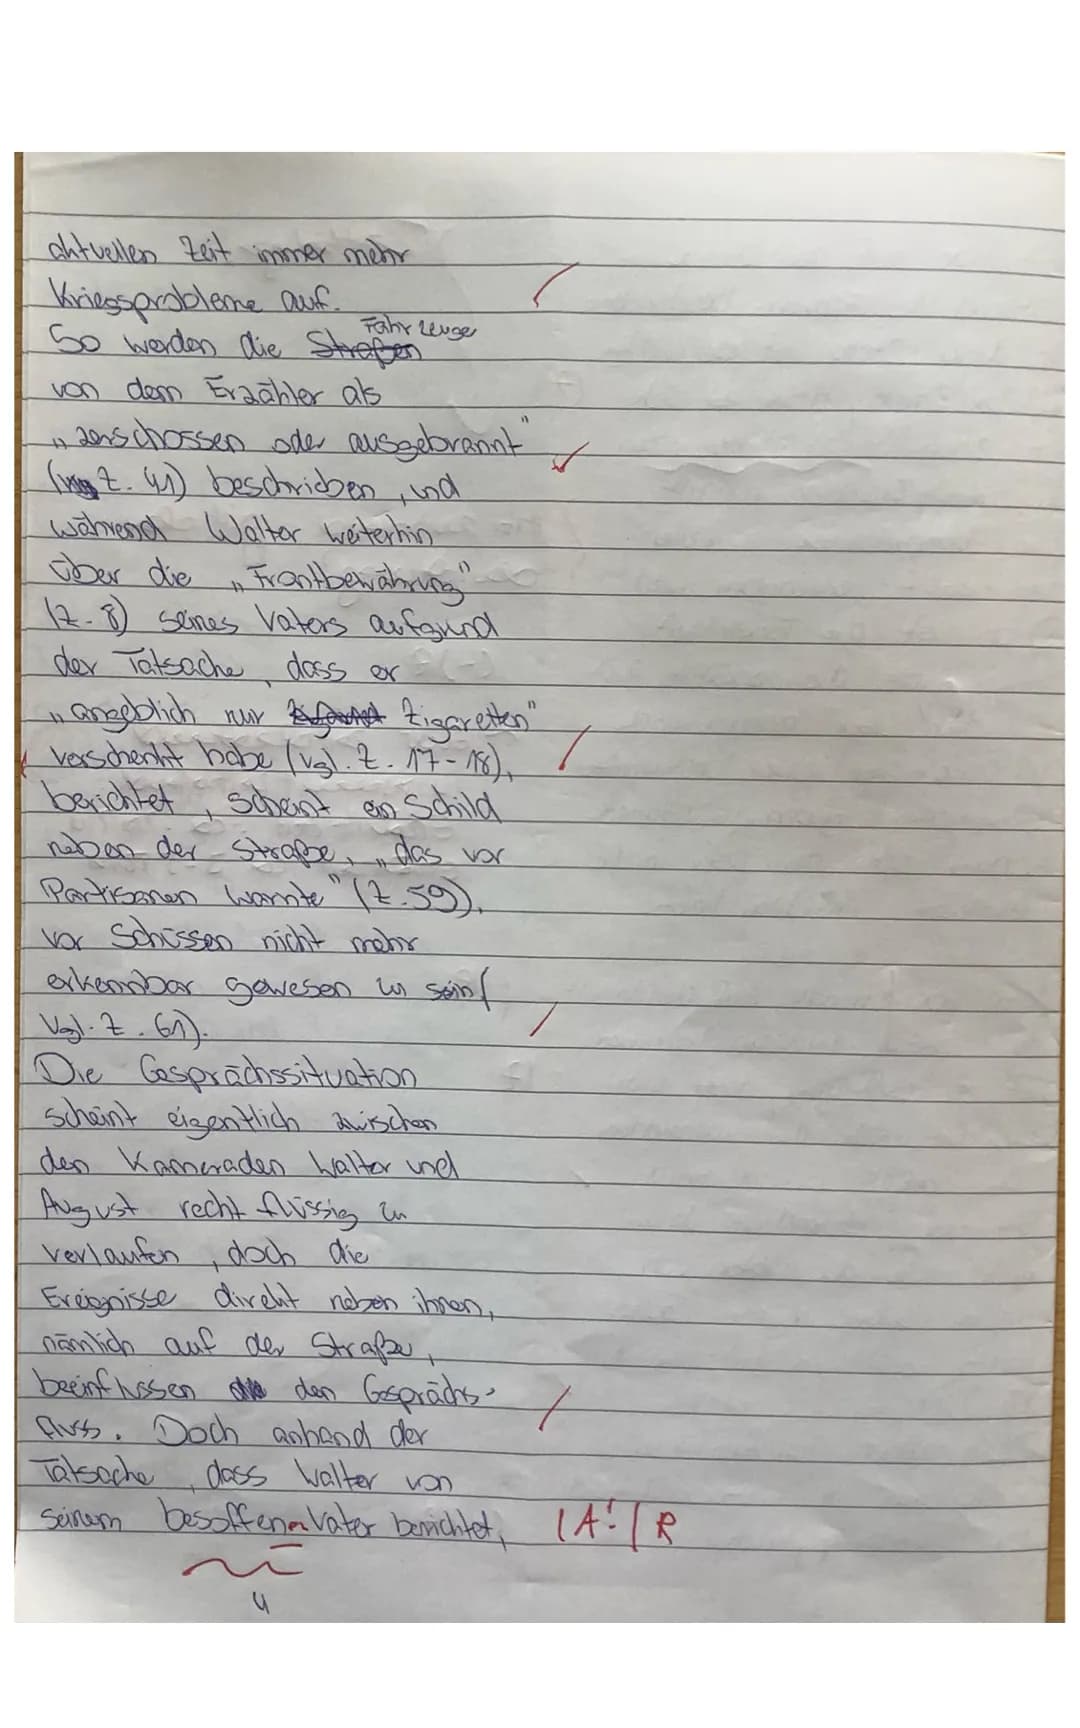 aktuellen Zeit immer mehr
Kriegsprobleme auf.
So werden die Straßen Fahrzeuge
von dem Erzähler als
„zerschossen oder ausgebrannt"
(Z. 41) beschrieben, und
während Walter weiterhin
über die „Frontbewährung"
(Z. 8) seines Vaters aufgrund
der Tatsache, dass er
„angeblich nur Zigaretten"
verschenkt habe (vgl. Z. 17-18),
berichtet, scheint ein Schild
neben der Straße, „das vor
Partisanen warnte" (Z. 59),
vor Schüssen nicht mehr
erkennbar gewesen zu sein (
vgl. Z. 61).
Die Gesprächssituation
scheint eigentlich zwischen
den Kameraden Walter und
August recht flüssig zu
verlaufen, doch die
Ereignisse direkt neben ihnen,
nämlich auf der Straße,
beeinflussen den Gesprächs-
fluss. Doch anhand der
Tatsache, dass Walter von
seinem besoffenen Vater berichtet, | A! | R
4